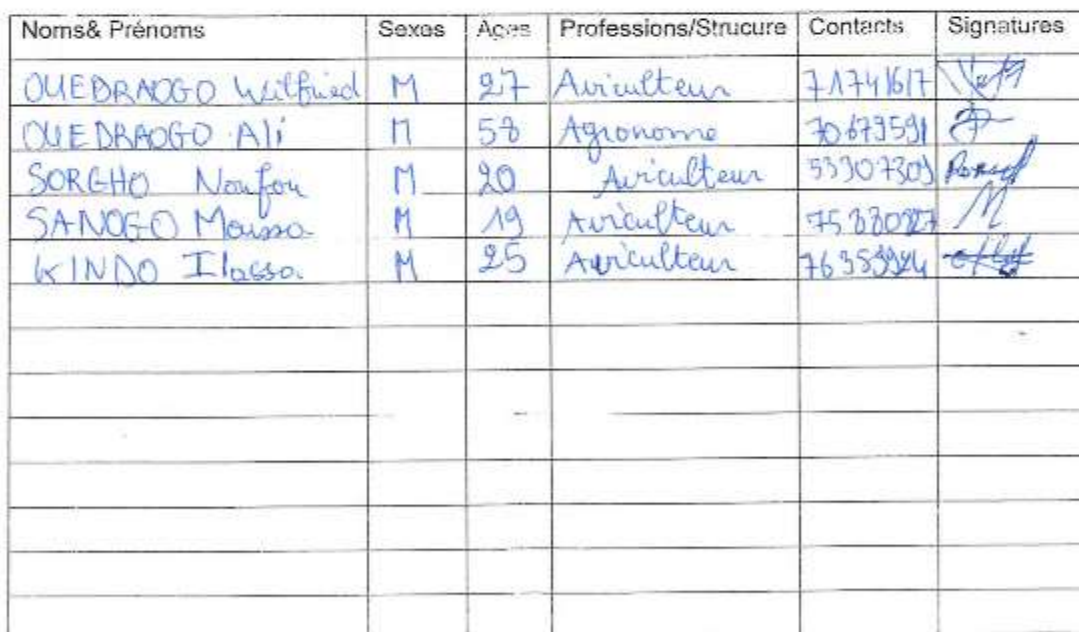 Noms& Prénoms Sexes Ages Professions/Strucure Contacts Signatures
OUEDRAOGO Wilfried M 27 Aviculteur 71741617
OUEDRAOGO Ali M 58 Agronome 70679591
SORGHO Noufou M 20 Aviculteur 53307309
SANOGO Moussa M 19 Aviculteur
KINDO Ilassa M 25 Aviculteur